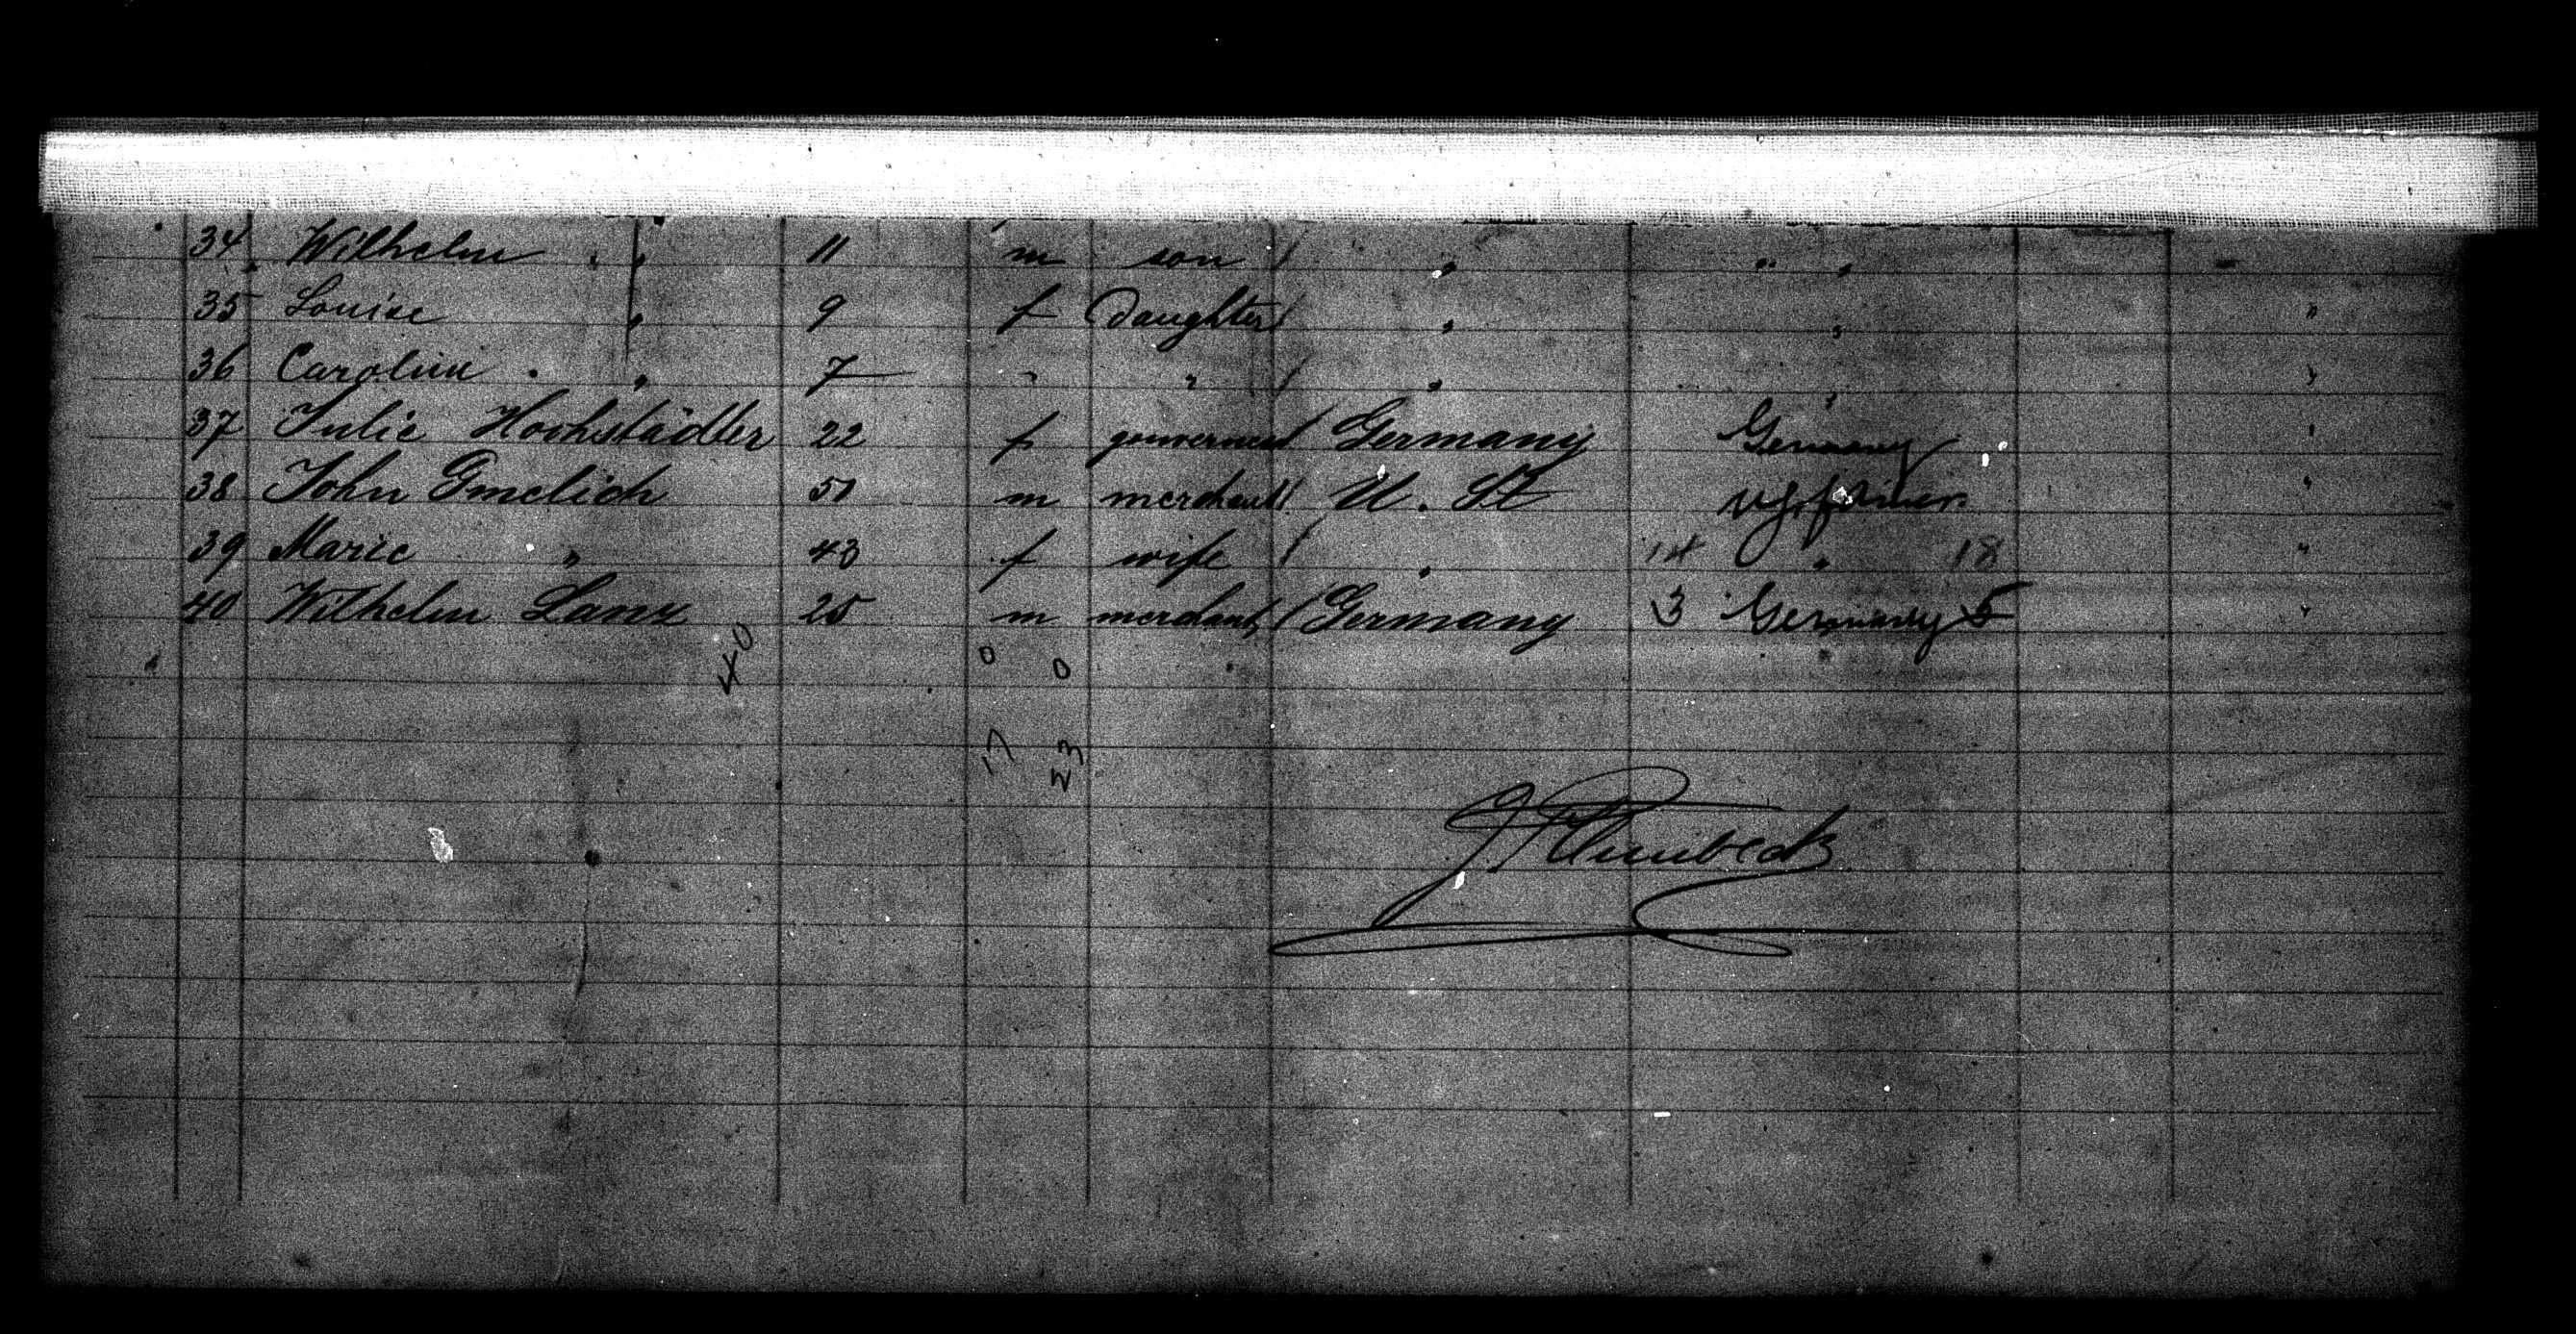 34 Wilhelm " 11 m son / " " "
35 Louise " 9 f Daughter / " " "
36 Carolin " 7 " " / " " "
37 Julie Hochstädter 22 f / Germany Germany "
38 John Gmelich 51 m merchant / U. St "
39 Marie " 43 f wife / " 14 " 18 "
40 Wilhelm Lanz 25 m merchant / Germany 3 Germany 5 "
40 0 0
17 23